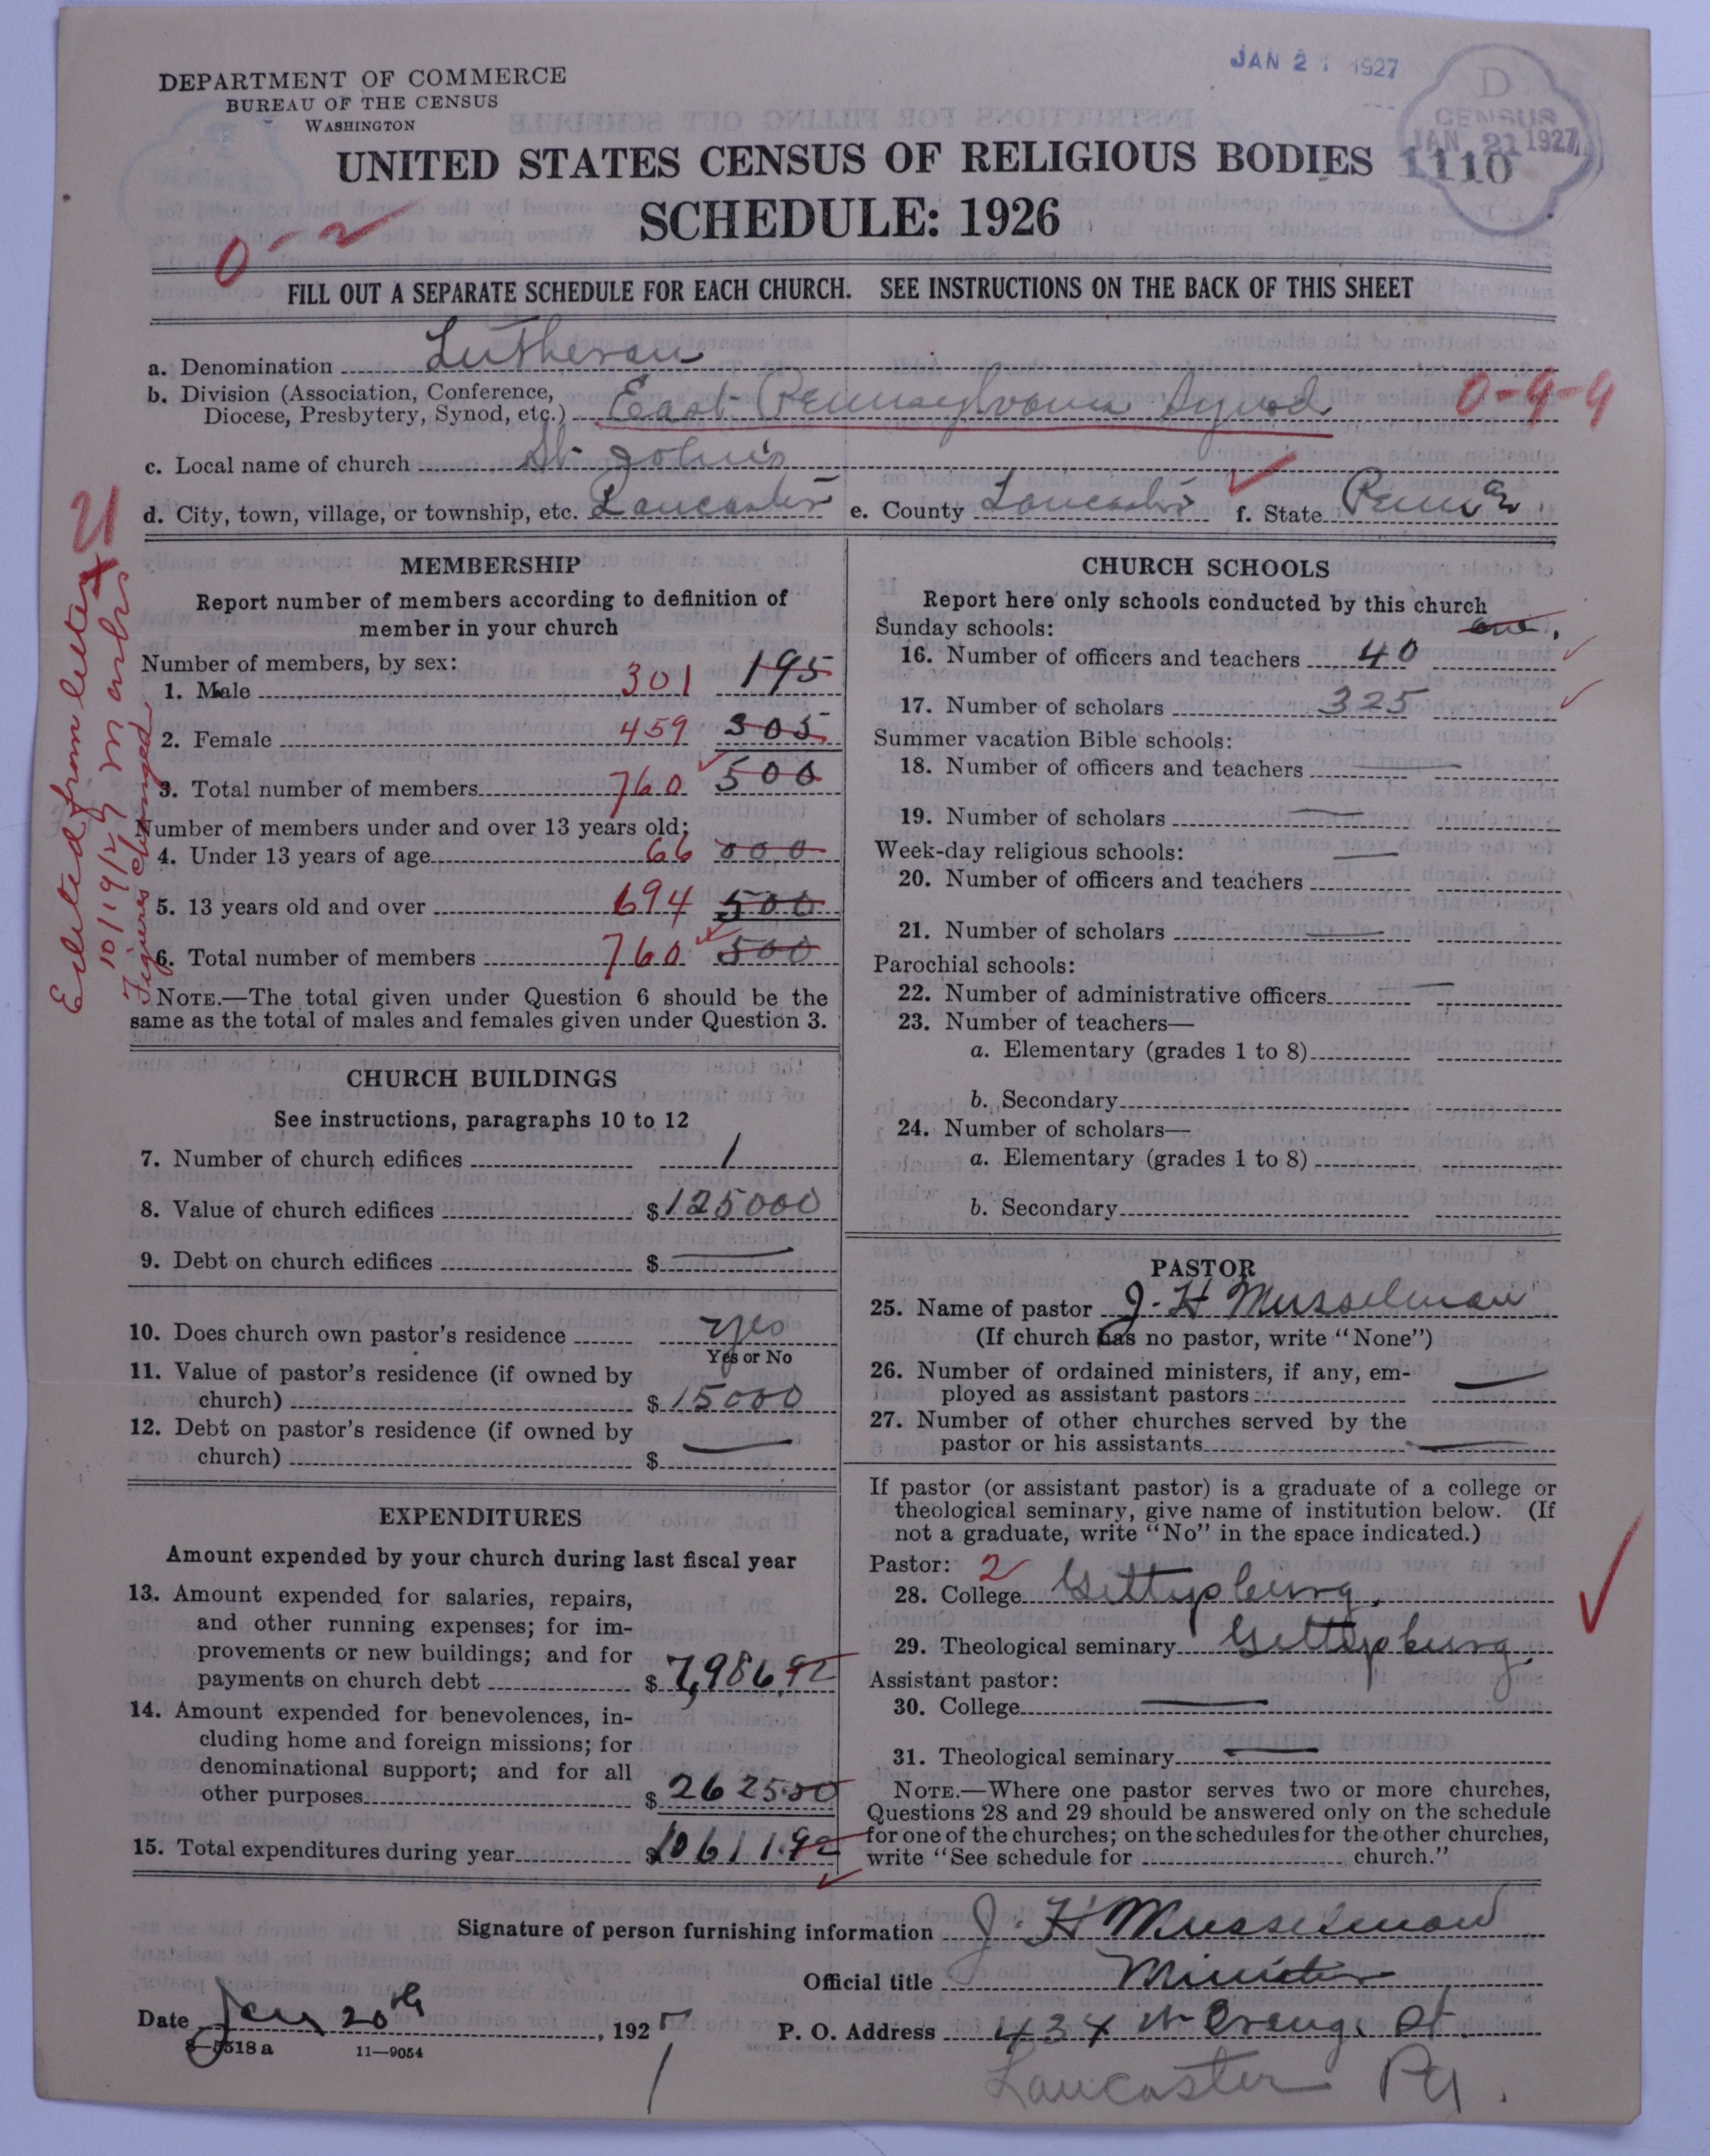 JAN 21 1927
DEPARTMENT OF COMMERCE
BUREAU OF THE CENSUS
WASHINGTON
D
CENSUS
JAN 21 1927
UNITED STATES CENSUS OF RELIGIOUS BODIES
1110
SCHEDULE: 1926
0-2
FILL OUT A SEPARATE SCHEDULE FOR EACH CHURCH. SEE INSTRUCTIONS ON THE BACK OF THIS SHEET
a. Denomination Lutheran
b. Division (Association, Conference,
Diocese, Presbytery, Synod, etc.) East Pennsylvania Synod 0-9-9
c. Local name of church St. John's
d. City, town, village, or township, etc. Lancaster e. County Lancaster f. State Penna
Edited from letter
10/19/27 M
Figures changed
MEMBERSHIP
Report number of members according to definition of
member in your church
Number of members, by sex:
1. Male 301 195
2. Female 459 305
3. Total number of members 760 500
Number of members under and over 13 years old:
4. Under 13 years of age 66 000
5. 13 years old and over 694 500
6. Total number of members 760 500
NOTE.—The total given under Question 6 should be the
same as the total of males and females given under Question 3.
CHURCH BUILDINGS
See instructions, paragraphs 10 to 12
7. Number of church edifices 1
8. Value of church edifices $125000
9. Debt on church edifices $
10. Does church own pastor's residence yes
Yes or No
11. Value of pastor's residence (if owned by
church) $15000
12. Debt on pastor's residence (if owned by
church) $
EXPENDITURES
Amount expended by your church during last fiscal year
13. Amount expended for salaries, repairs,
and other running expenses; for im-
provements or new buildings; and for
payments on church debt $7,986.92
14. Amount expended for benevolences, in-
cluding home and foreign missions; for
denominational support; and for all
other purposes $2625.00
15. Total expenditures during year $10611.92
CHURCH SCHOOLS
Report here only schools conducted by this church
Sunday schools: one.
16. Number of officers and teachers 40
17. Number of scholars 325
Summer vacation Bible schools:
18. Number of officers and teachers
19. Number of scholars
Week-day religious schools:
20. Number of officers and teachers
21. Number of scholars
Parochial schools:
22. Number of administrative officers
23. Number of teachers—
a. Elementary (grades 1 to 8)
b. Secondary
24. Number of scholars—
a. Elementary (grades 1 to 8)
b. Secondary
PASTOR
25. Name of pastor J. H Musselman
(If church has no pastor, write "None")
26. Number of ordained ministers, if any, em-
ployed as assistant pastors
27. Number of other churches served by the
pastor or his assistants
If pastor (or assistant pastor) is a graduate of a college or
theological seminary, give name of institution below. (If
not a graduate, write "No" in the space indicated.)
Pastor: 2
28. College Gettysburg
29. Theological seminary Gettysburg
Assistant pastor:
30. College
31. Theological seminary
NOTE.—Where one pastor serves two or more churches,
Questions 28 and 29 should be answered only on the schedule
for one of the churches; on the schedules for the other churches,
write "See schedule for church."
Signature of person furnishing information J. H Musselman
Official title Minister
Date Jan 20th, 1927 P. O. Address 434 W Orange St.
8-5518a 11—9054
Lancaster Pa.